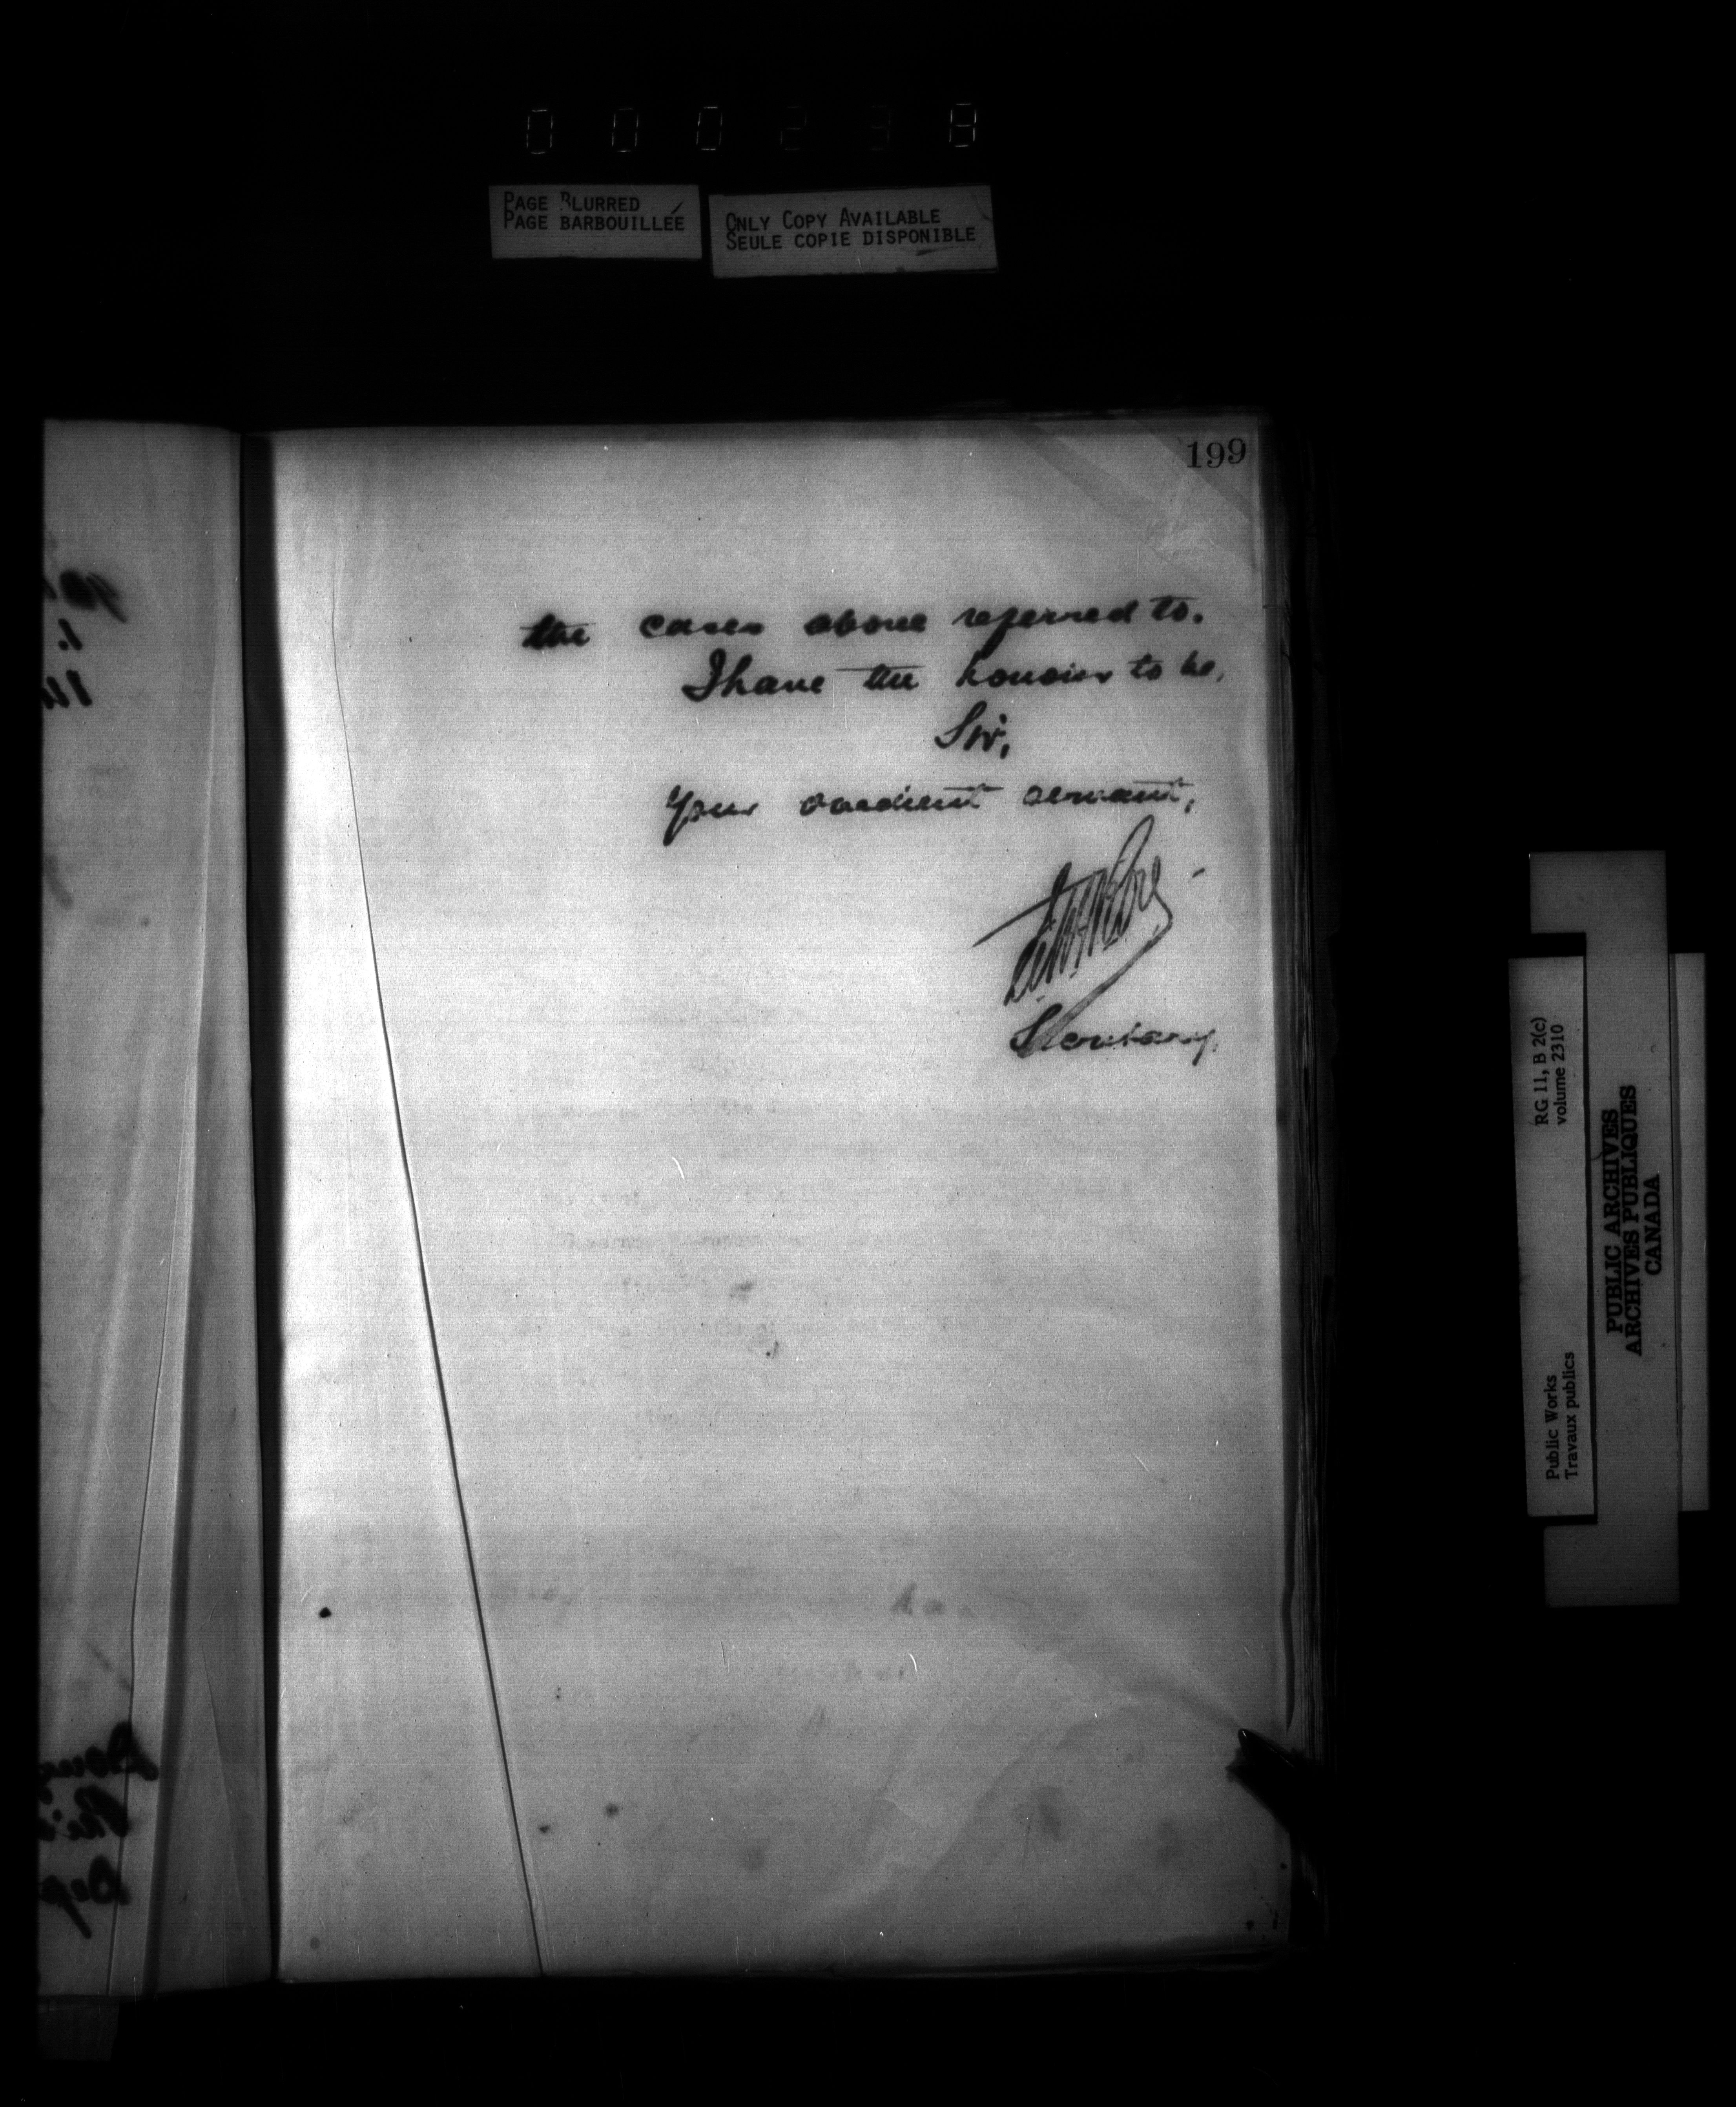 000238
PAGE BLURRED
PAGE BARBOUILLÉE
ONLY COPY AVAILABLE
SEULE COPIE DISPONIBLE
199
the cases above referred to.
I have the honour to be,
Sir,
Your obedient servant,
Secretary.
RG 11, B 2(c)
volume 2310
Public Works
Travaux publics
PUBLIC ARCHIVES
ARCHIVES PUBLIQUES
CANADA